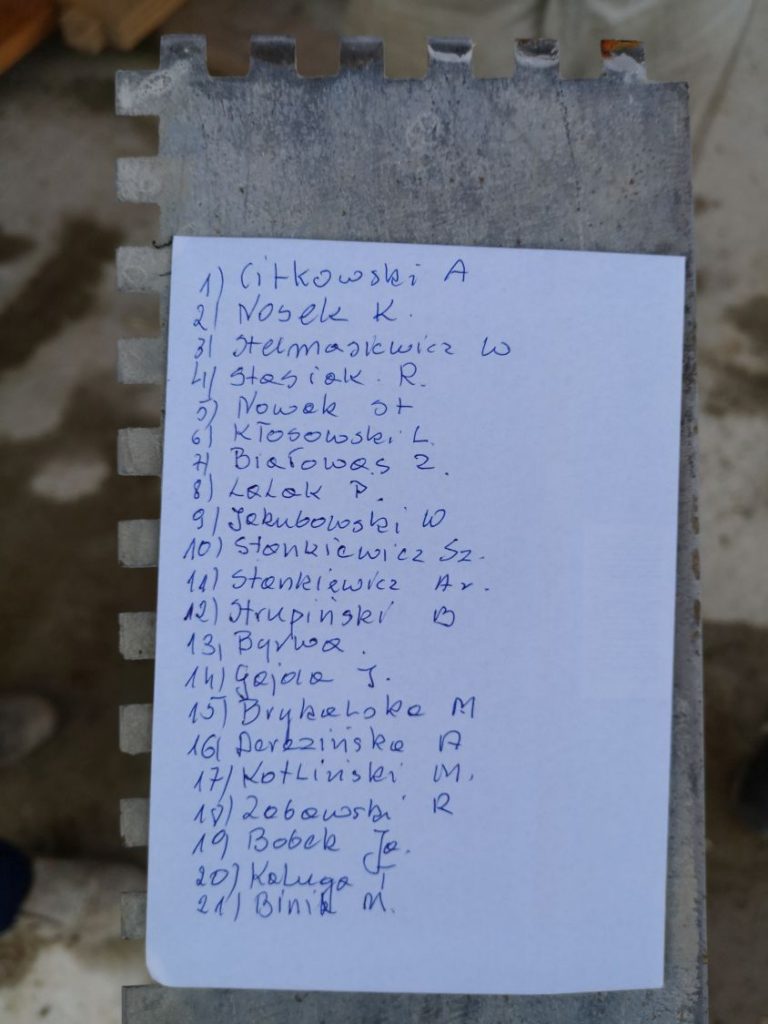 1) Citkowski A
2) Nosek K.
3) Stelmaskiewicz W
4) Stasiak. R.
5) Nowak St
6) Kłosowski L.
7) Białowąs Z.
8) Lalak P.
9) Jakubowski W
10) Stankiewicz Sz.
11) Stankiewicz Ar.
12) Strupiński B
13, Byrwa.
14) Gajda J.
15) Brykalska M
16) Derezińska A
17) Kotliński M.
18) Zabawski R
19) Bobek Ja.
20) Kaługa T
21) Binik M.